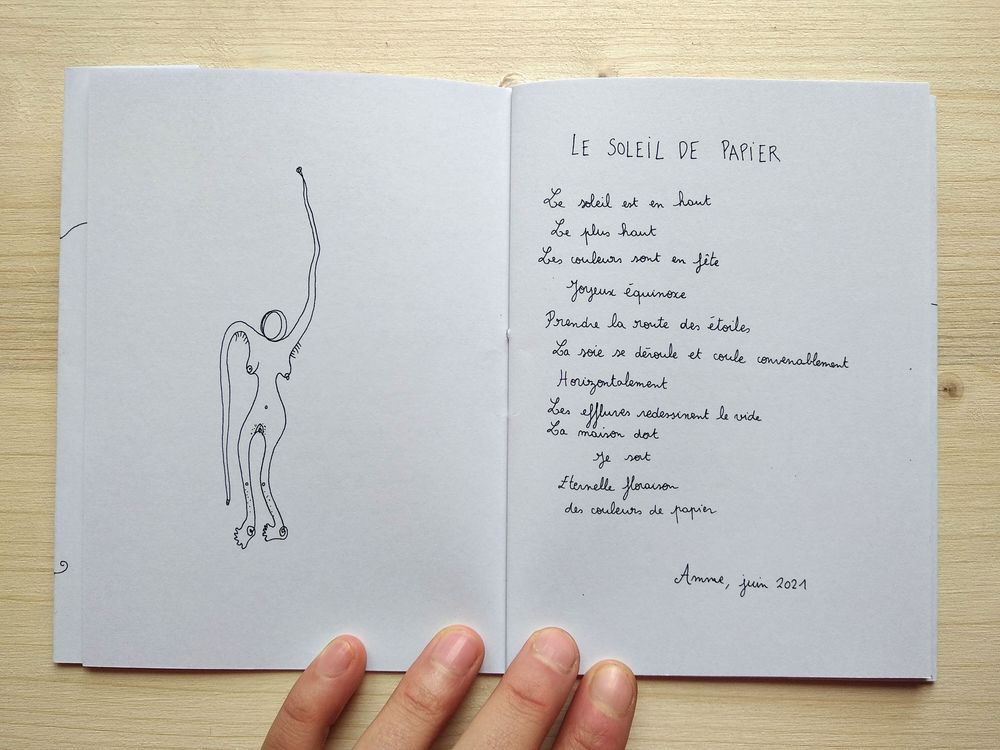 LE SOLEIL DE PAPIER
Le soleil est en haut
Le plus haut
Les couleurs sont en fête
Joyeux équinoxe
Prendre la route des étoiles
La soie se déroule et coule convenablement
Horizontalement
Les efflures redessinent le vide
La maison dort
Je sort
Eternelle floraison
des couleurs de papier
Amme, juin 2021